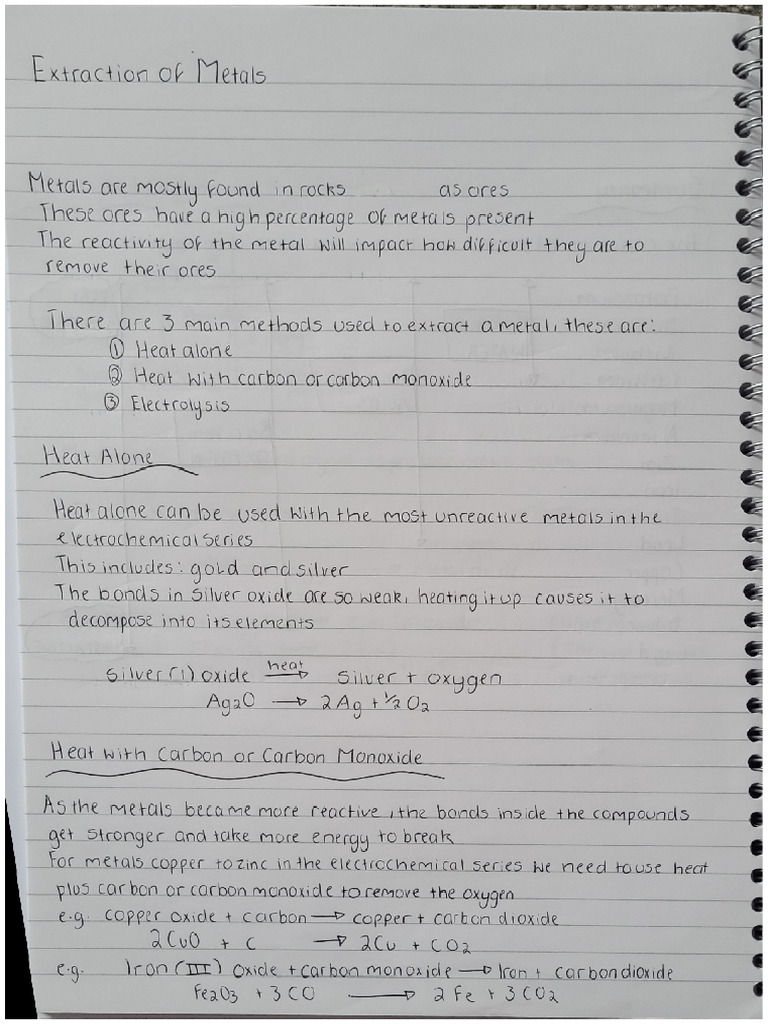 Extraction of Metals
Metals are mostly found in rocks as ores
These ores have a high percentage of metals present
The reactivity of the metal will impact how difficult they are to
remove their ores
There are 3 main methods used to extract a metal, these are:
① Heat alone
② Heat with carbon or carbon monoxide
③ Electrolysis
Heat Alone
Heat alone can be used with the most unreactive metals in the
electrochemical series
This includes: gold and silver
The bonds in silver oxide are so weak, heating it up causes it to
decompose into its elements
heat
silver(I) oxide → silver + oxygen
Ag₂O → 2Ag + ½O₂
Heat with Carbon or Carbon Monoxide
As the metals became more reactive, the bonds inside the compounds
get stronger and take more energy to break
For metals copper to zinc in the electrochemical series we need to use heat
plus carbon or carbon monoxide to remove the oxygen
e.g. copper oxide + carbon → copper + carbon dioxide
2CuO + C → 2Cu + CO₂
e.g. Iron (III) oxide + carbon monoxide → Iron + carbon dioxide
Fe₂O₃ + 3CO → 2Fe + 3CO₂